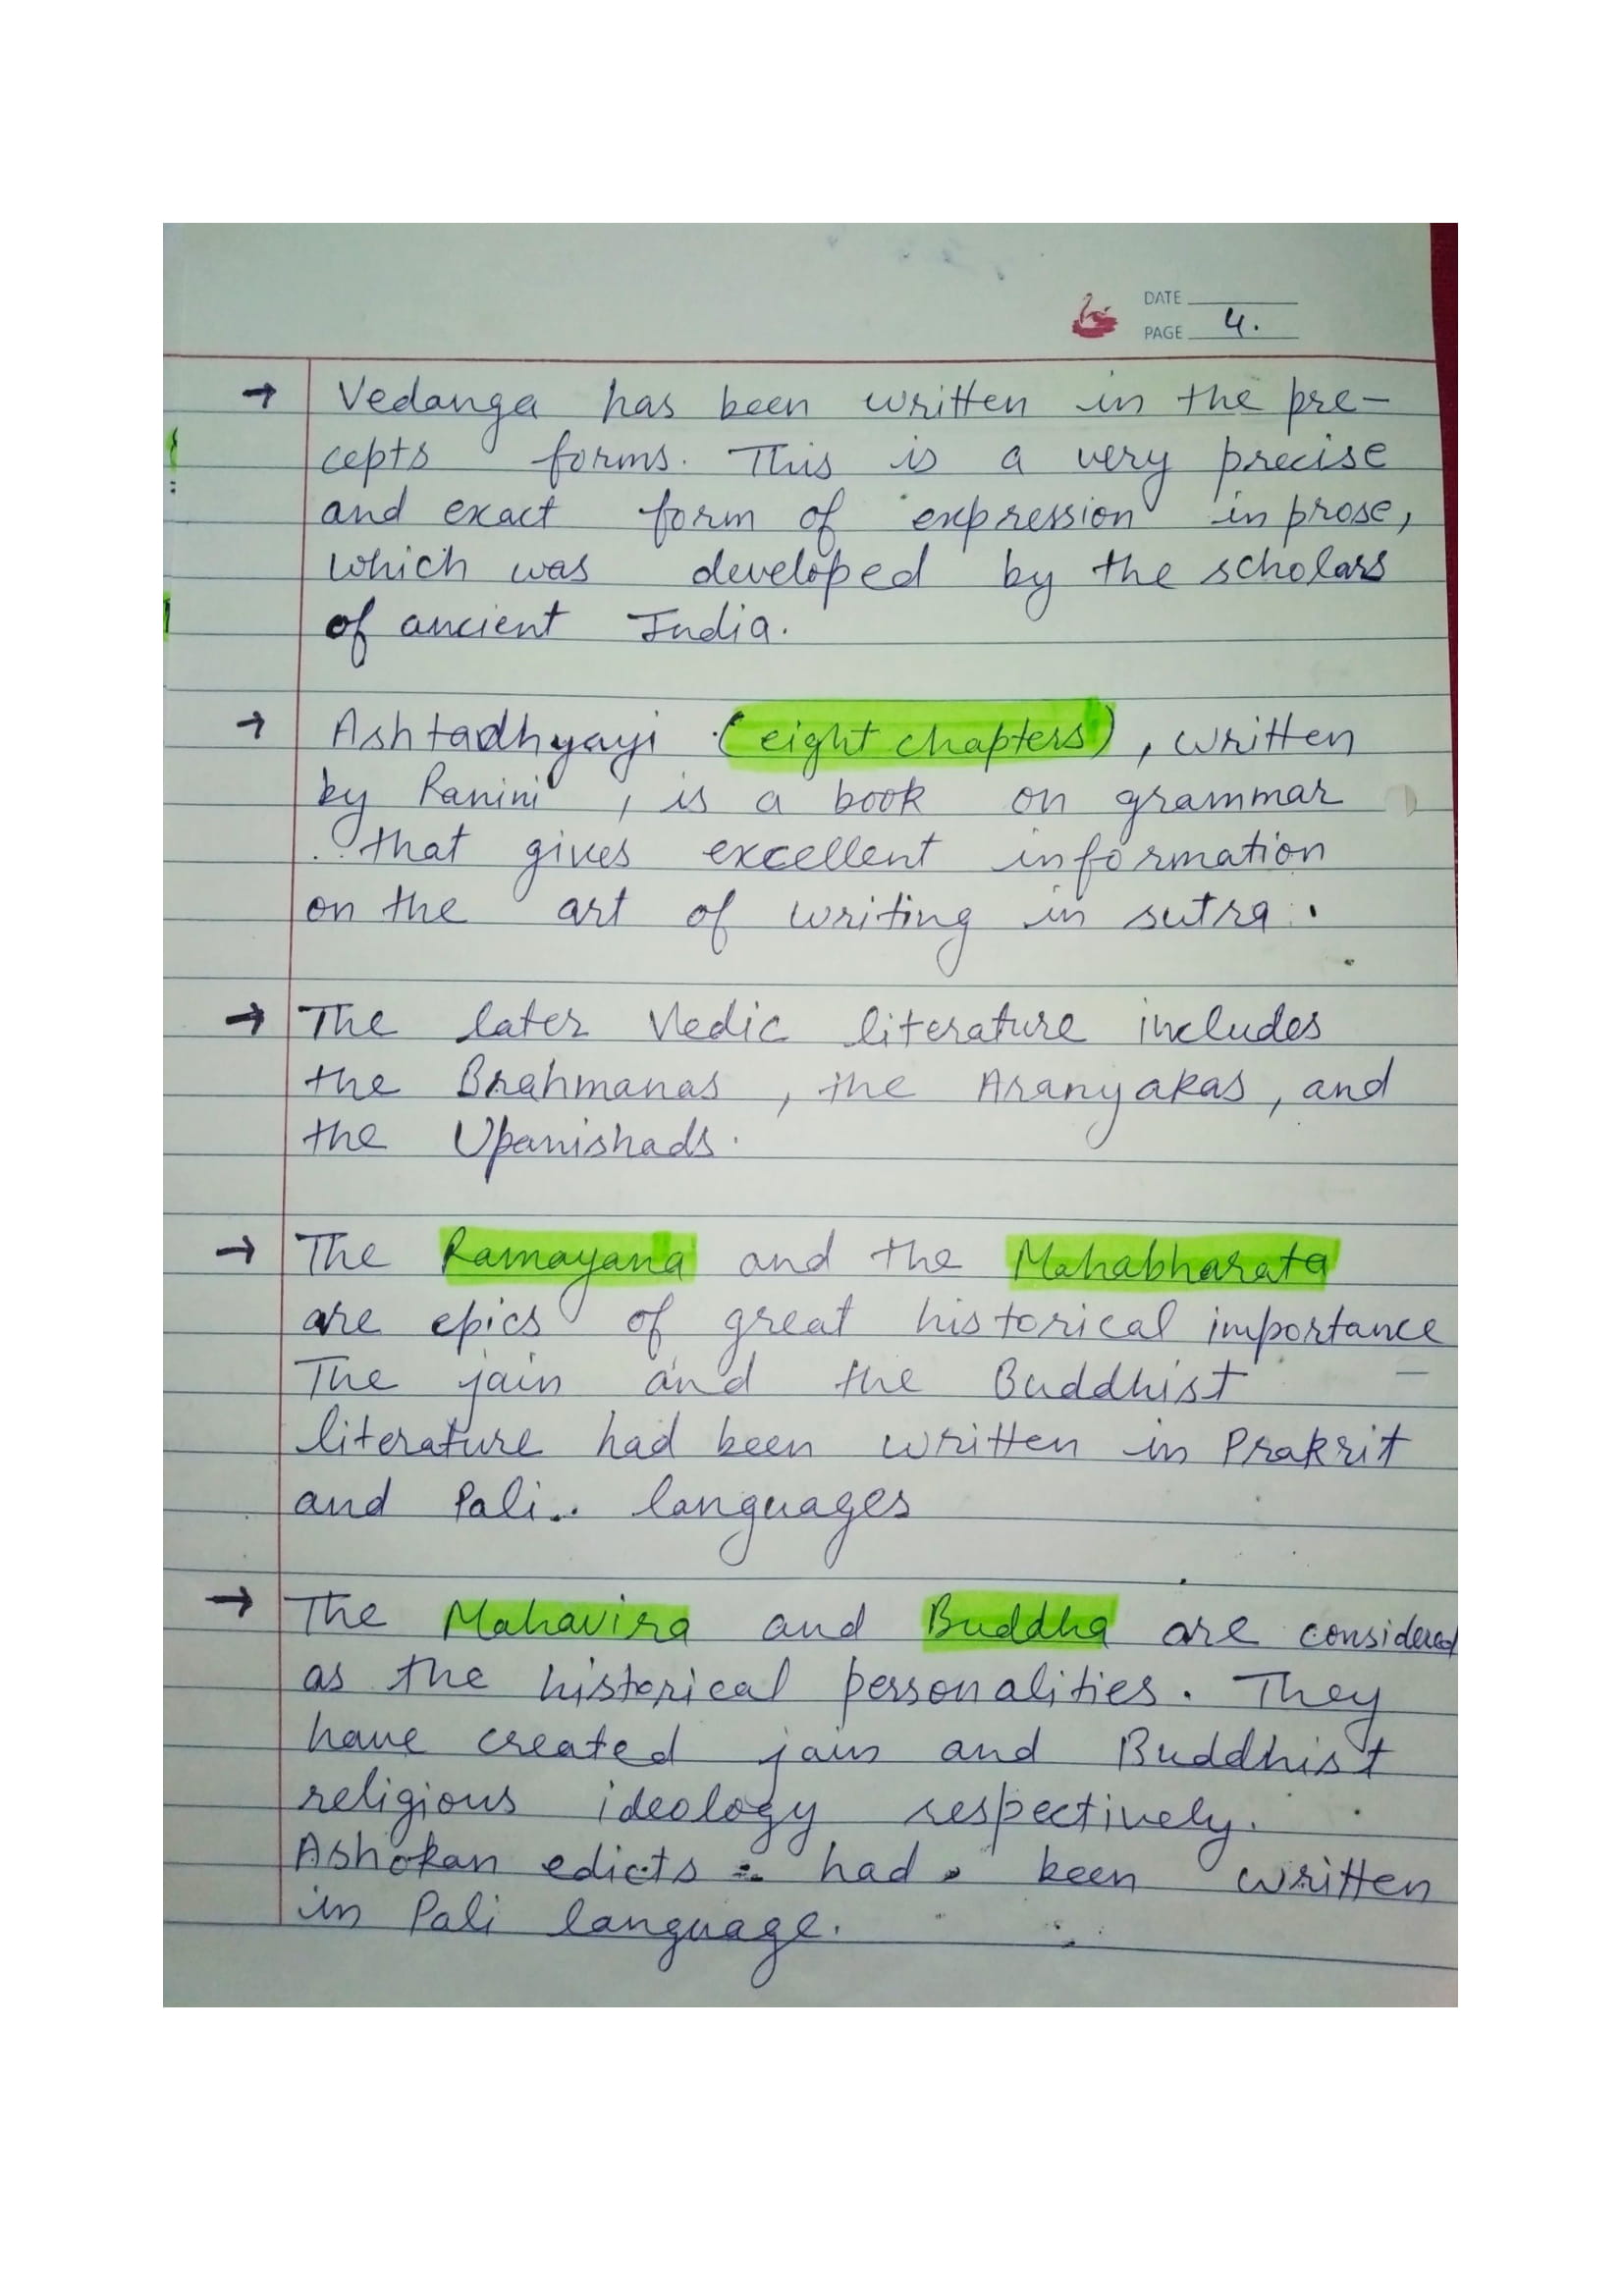 DATE
PAGE 4.
→ Vedanga has been written in the pre-
cepts forms. This is a very precise
and exact form of expression in prose,
which was developed by the scholars
of ancient India.
→ Ashtadhyayi (eight chapters), written
by Panini, is a book on grammar
that gives excellent information
on the art of writing in sutra.
→ The later Vedic literature includes
the Brahmanas, the Aranyakas, and
the Upanishads.
→ The Ramayana and the Mahabharata
are epics of great historical importance
The jain and the Buddhist
literature had been written in Prakrit
and Pali.. languages
→ The Mahavira and Buddha are considered
as the historical personalities. They
have created jain and Buddhist
religious ideology respectively.
Ashokan edicts had been written
in Pali language.